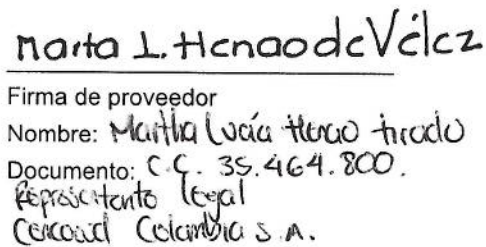 Marta L. Henao de Vélez
Firma de proveedor
Nombre: Martha Lucía Henao tirado
Documento: C.C. 35.464.800.
Representante legal
Cencosud Colombia S.A.